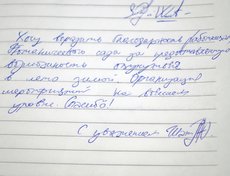 Хочу передать благодарность работникам
Ботанического сада за предоставленную
возможность окунуться
в лето зимой. Организация
мероприятий на высоком
уровне. Спасибо!
С уважением